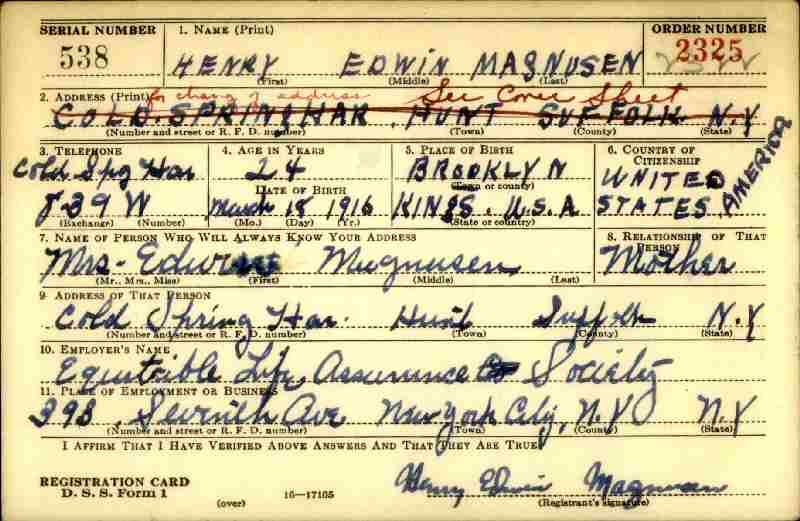 SERIAL NUMBER 1. NAME (Print) ORDER NUMBER
538 HENRY EDWIN MAGNUSEN 2325
(First) (Middle) (Last)
2. ADDRESS (Print) for chang of address See Cover Sheet
COLD. SPRING HAR. HUNT SUFFOLK N.Y
(Number and street or R. F. D. number) (Town) (County) (State)
3. TELEPHONE 4. AGE IN YEARS 5. PLACE OF BIRTH 6. COUNTRY OF CITIZENSHIP
Cold Spg Har 24 BROOKLYN UNITED
DATE OF BIRTH (Town or county)
839 W March 18 1916 KINGS. U.S.A STATES, AMERICA
(Exchange) (Number) (Mo.) (Day) (Yr.) (State or country)
7. NAME OF PERSON WHO WILL ALWAYS KNOW YOUR ADDRESS 8. RELATIONSHIP OF THAT PERSON
Mrs- Magnusen Mother
(Mr., Mrs., Miss) (First) (Middle) (Last)
9. ADDRESS OF THAT PERSON
Cold Spring Har. Hunt Suffolk N.Y
(Number and street or R. F. D. number) (Town) (County) (State)
10. EMPLOYER'S NAME
Equitable Life Assurance Society
11. PLACE OF EMPLOYMENT OR BUSINESS
393. Seventh Ave New York City, N.Y N.Y
(Number and street or R. F. D. number) (Town) (County) (State)
I AFFIRM THAT I HAVE VERIFIED ABOVE ANSWERS AND THAT THEY ARE TRUE.
REGISTRATION CARD Henry Edwin Magnusen
D. S. S. Form 1 (over) 16—17105 (Registrant's signature)